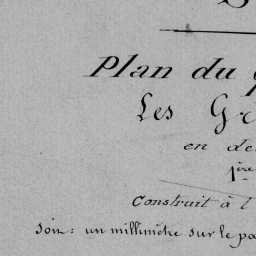 Plan du
Les Gr
en de
1ère
Construit à l
Soit: un millimètre sur le pa